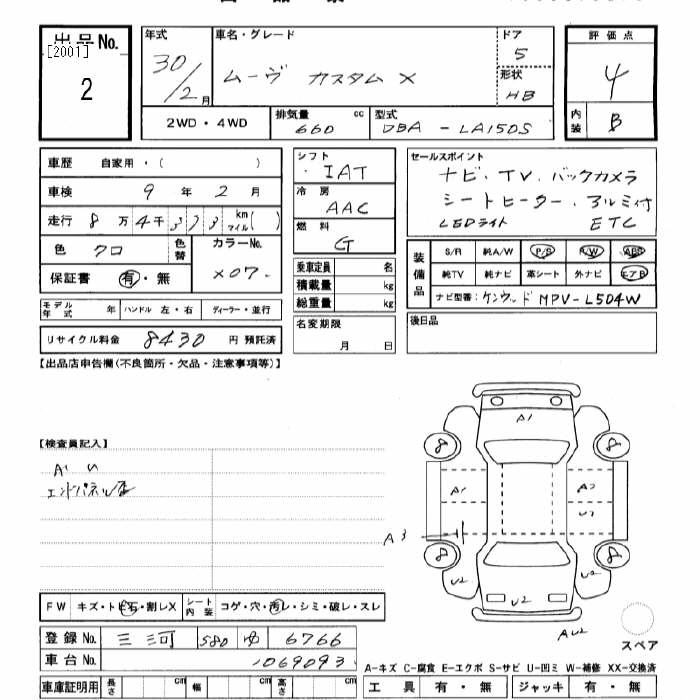 出品No.
[2001]
2
年式
30/2月
車名・グレード
ムーヴ カスタム X
ドア
5
形状
HB
評価点
4
内装
B
2WD・4WD
排気量 660 cc
型式 DBA - LA150S
車歴 自家用・( )
車検 9年 2月
走行 8万4千373 km マイル( )
色 クロ 色替 カラーNo. X07
保証書 有・無
モデル年式 年 ハンドル 左・右 ディーラー・並行
リサイクル料金 8430 円 預託済
シフト
IAT
冷房
AAC
燃料
G
乗車定員 名
積載量 kg
総重量 kg
名変期限
月 日
セールスポイント
ナビ・TV・バックカメラ
シートヒーター・アルミ付
LEDライト ETC
装備品
S/R 純A/W P/S P/W ABS
純TV 純ナビ 革シート 外ナビ エアB
ナビ型番:ケンウッド MPV-L504W
後日品
【出品店申告欄(不良箇所・欠品・注意事項等)】
【検査員記入】
A1 U
エンドパネル歪
A1
8
8
A1
A2
U1
A3
8
8
U2
U2
U2
AU2
スペア
FW キズ・トビ石・割レX シート内装 コゲ・穴・汚レ・シミ・破レ・スレ
登録No. 三河 580 ゆ 6766
車台No. 1069093
車庫証明用 長さ cm 幅 cm 高さ cm
A-キズ C-腐食 E-エクボ S-サビ U-凹ミ W-補修 XX-交換済
工具 有・無 ジャッキ 有・無